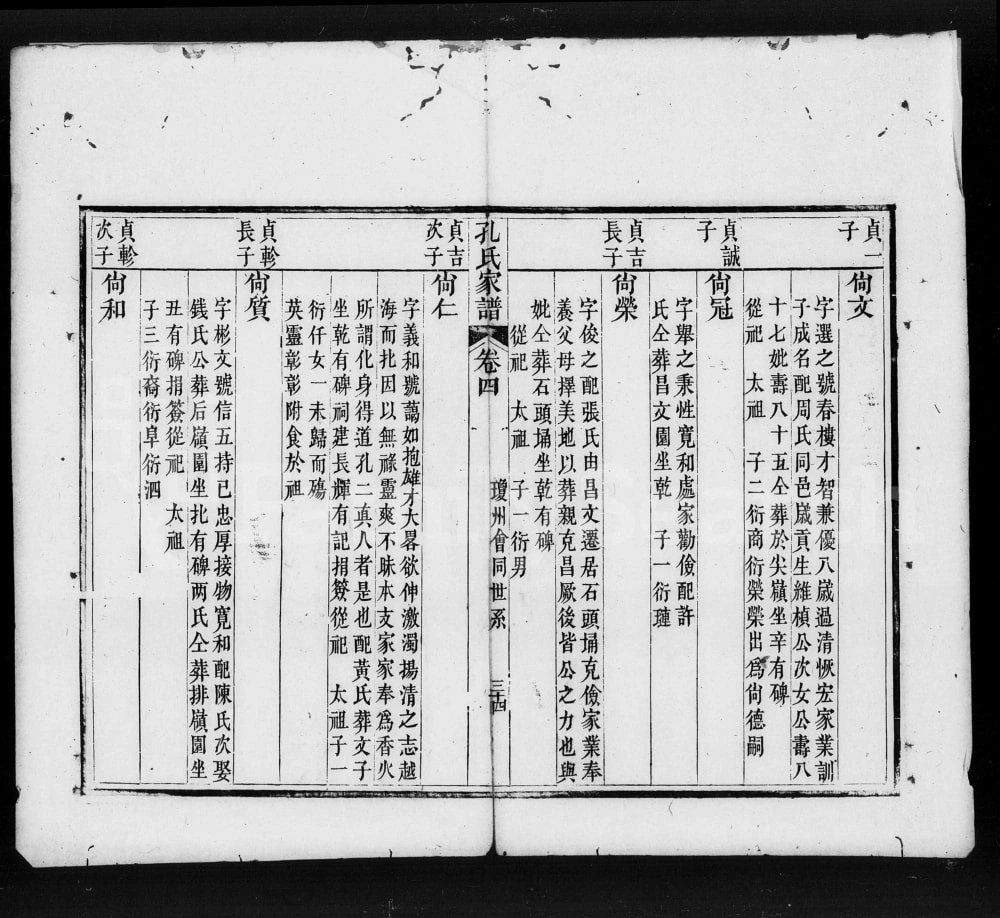 貞一
子
尙文
字選之號春樓才智兼優八歲過清恢宏家業訓
子成名配周氏同邑歲貢生維楨公次女公壽八
十七妣壽八十五仝葬於尖嶺坐辛有碑
從祀　太祖　子二衍商衍榮榮出爲尙德嗣
貞誠
子
尙冠
字舉之秉性寬和處家勤儉配許
氏仝葬昌文園坐乾　子一衍璉
貞吉
長子
尙榮
字俊之配張氏由昌文遷居石頭埇克儉家業奉
養父母擇美地以葬親克昌厥後皆公之力也與
妣仝葬石頭埇坐乾有碑
從祀　太祖　子一衍男
孔氏家譜
卷四
瓊州會同世系
三十四
貞吉
次子
尙仁
字義和號藹如抱雄才大畧欲伸激濁揚清之志越
海而北因以無祿靈爽不昧本支家家奉爲香火
所謂化身得道孔二眞人者是也配黃氏葬文子
坐乾有碑祠建長輝有記捐簽從祀　太祖子一
衍仟女一未歸而殤
英靈彰彰附食於祖
貞軫
長子
尙質
字彬文號信五持已忠厚接物寬和配陳氏次娶
錢氏公葬后嶺園坐北有碑两氏仝葬排嶺園坐
丑有碑捐簽從祀　太祖
子三衍裔衍阜衍泗
貞軫
次子
尙和